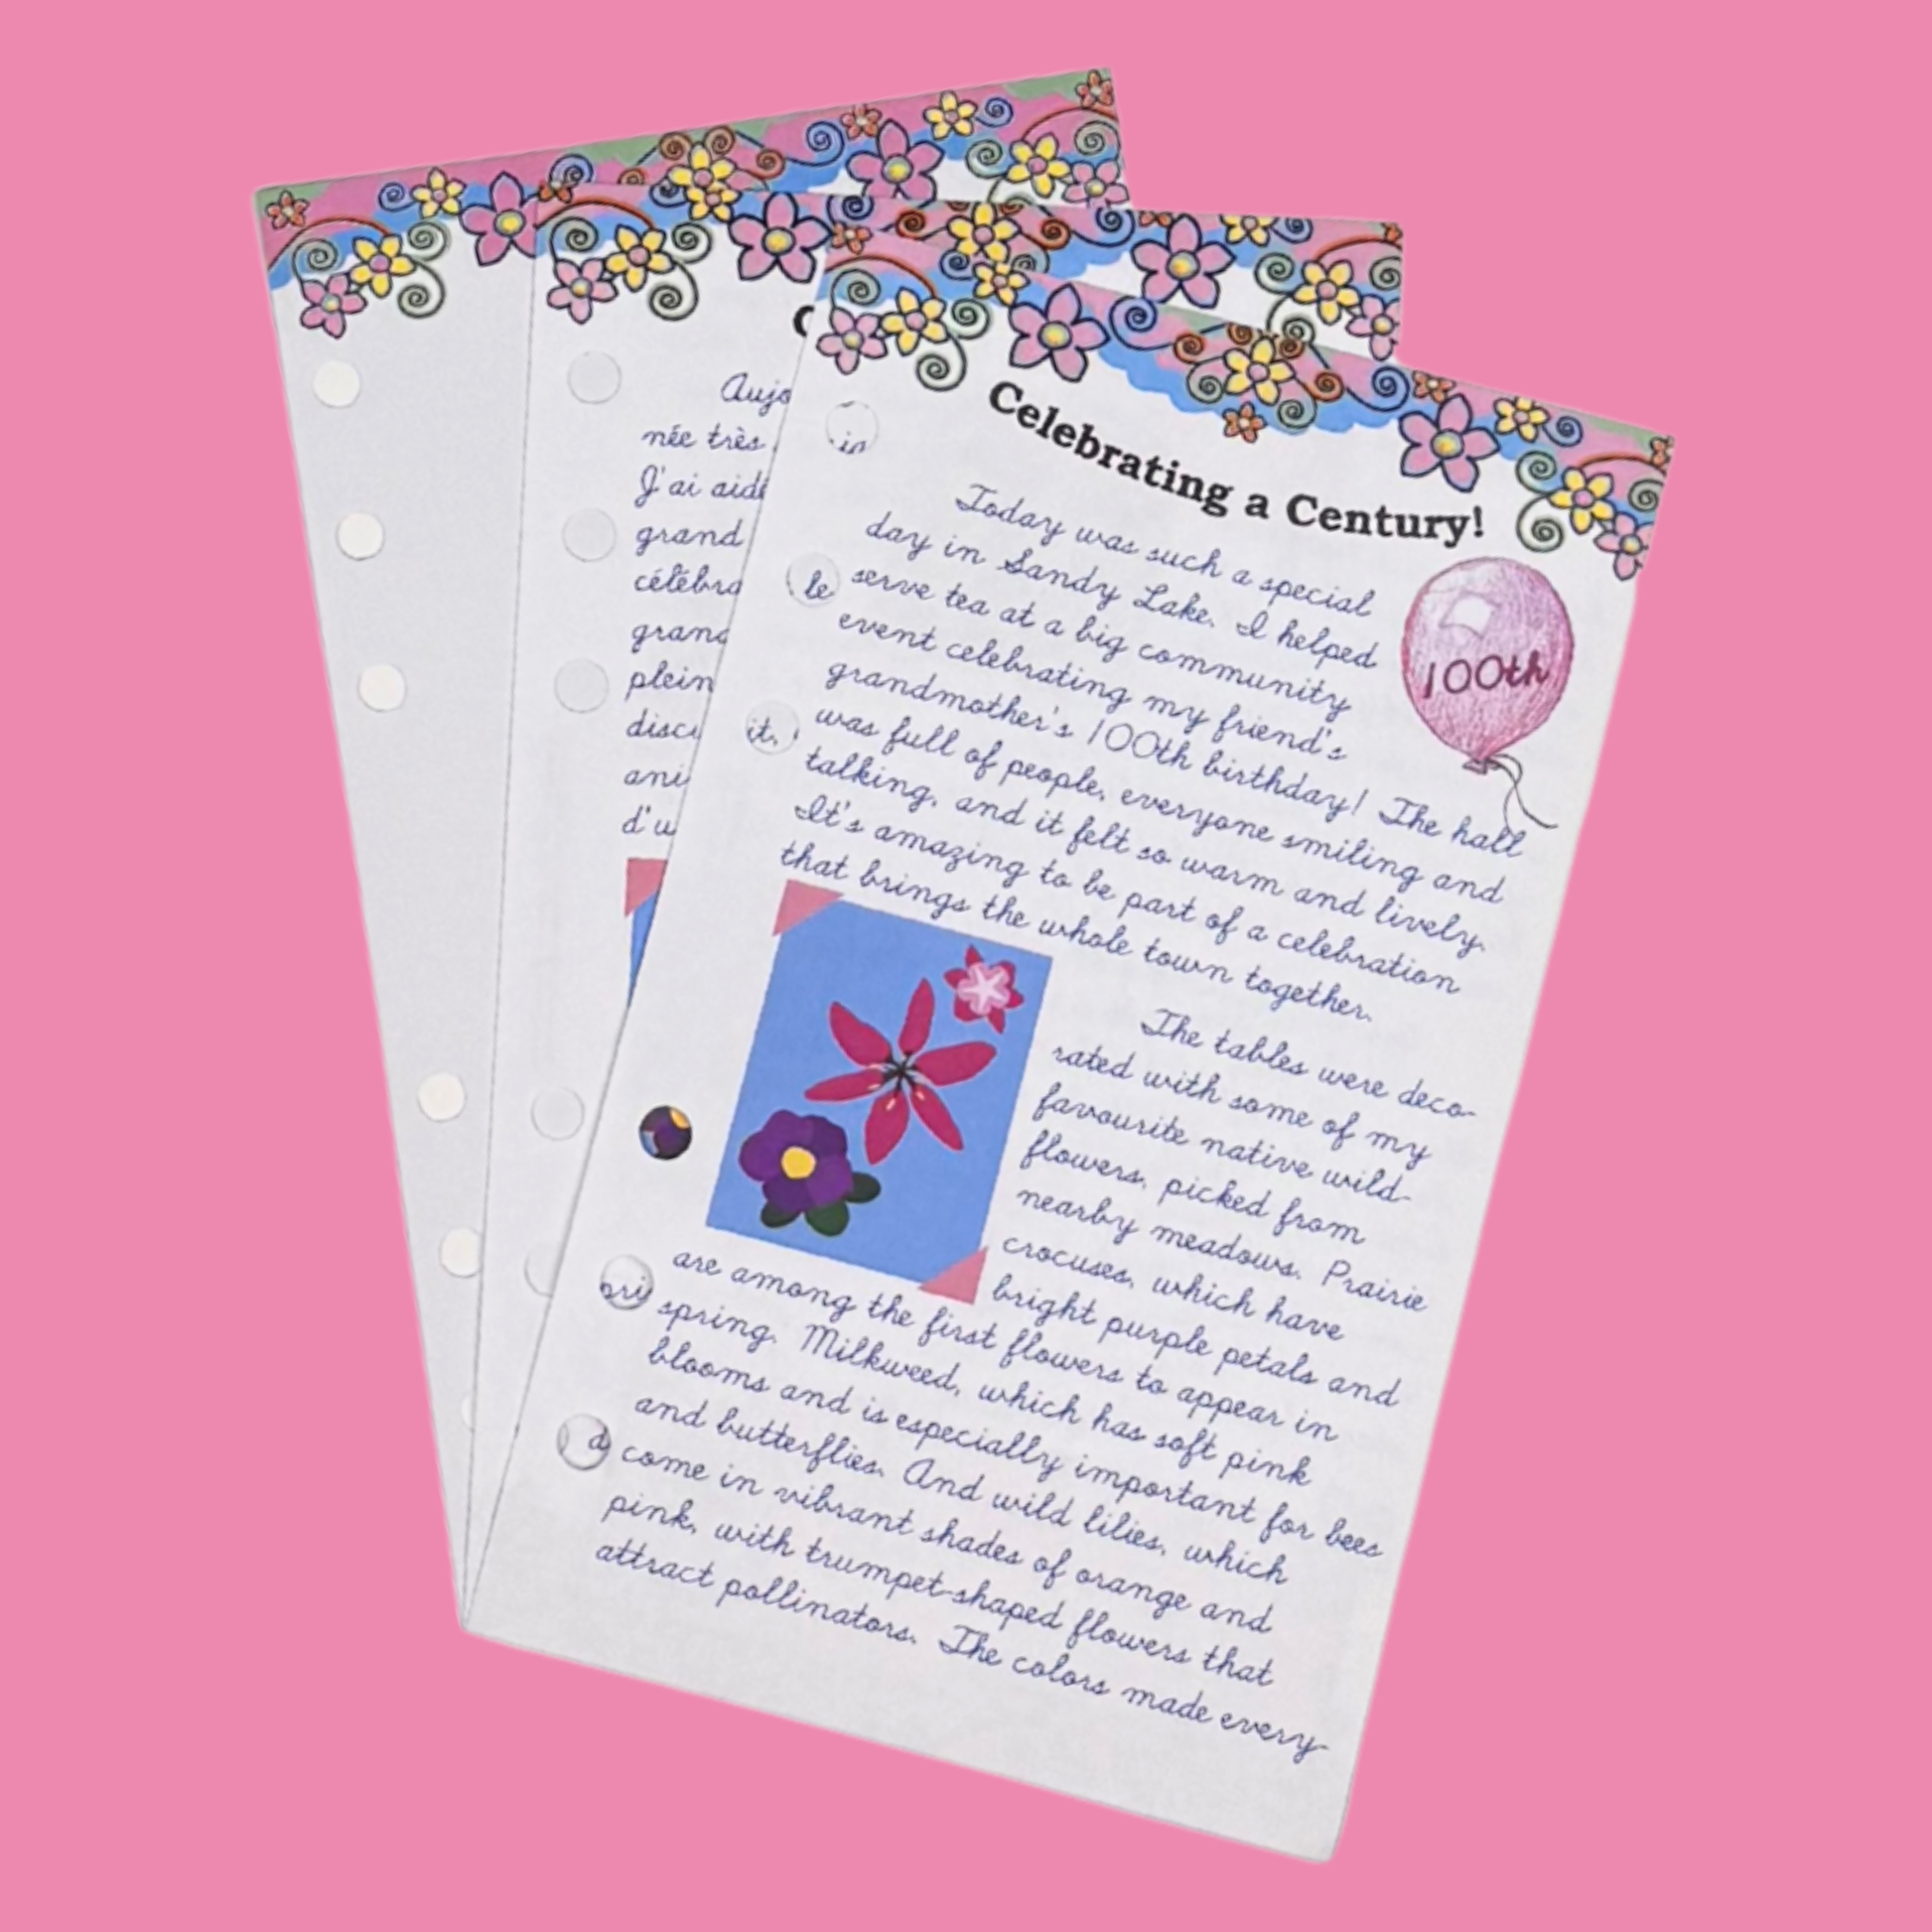 Aujo
née très
J'ai aidé
grand
célébra
grand
plein
discu
ani
d'u
in
le
it,
pri
d
Celebrating a Century!
100th
Today was such a special
day in Sandy Lake. I helped
serve tea at a big community
event celebrating my friend's
grandmother's 100th birthday! The hall
was full of people, everyone smiling and
talking, and it felt so warm and lively.
It's amazing to be part of a celebration
that brings the whole town together.
The tables were deco-
rated with some of my
favourite native wild-
flowers, picked from
nearby meadows. Prairie
crocuses, which have
bright purple petals and
are among the first flowers to appear in
spring. Milkweed, which has soft pink
blooms and is especially important for bees
and butterflies. And wild lilies, which
come in vibrant shades of orange and
pink, with trumpet-shaped flowers that
attract pollinators. The colors made every-